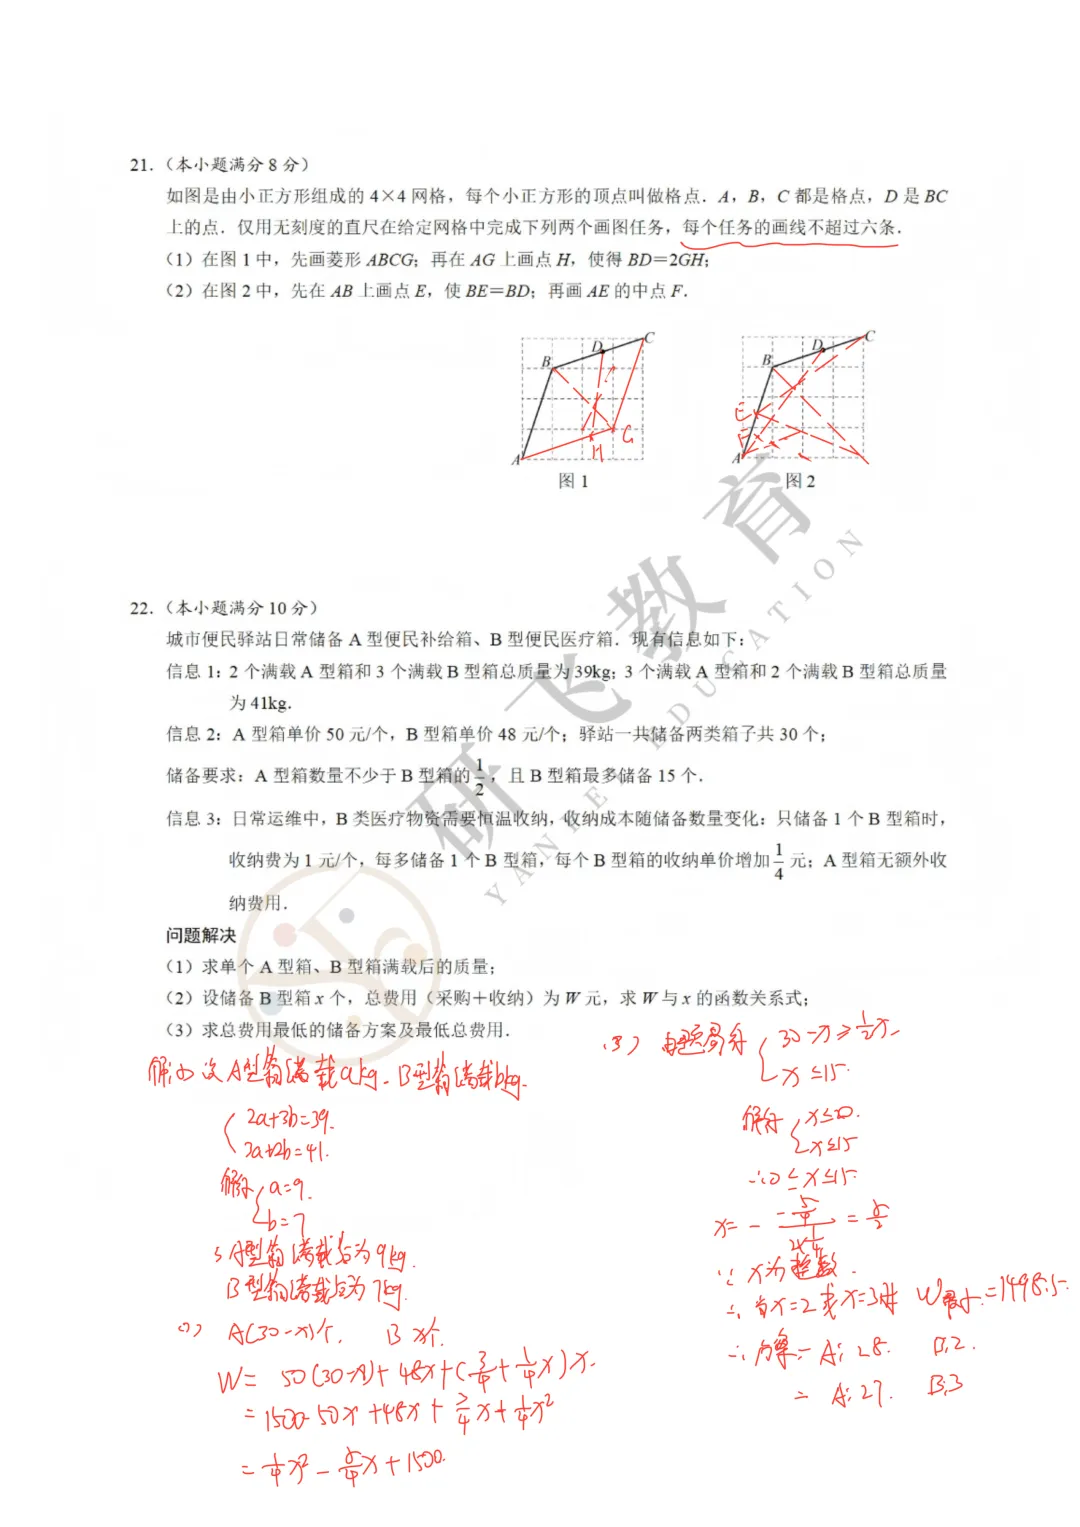 21.（本小题满分 8 分）
如图是由小正方形组成的 4×4 网格，每个小正方形的顶点叫做格点．A，B，C 都是格点，D 是 BC
上的点．仅用无刻度的直尺在给定网格中完成下列两个画图任务，每个任务的画线不超过六条．
（1）在图 1 中，先画菱形 ABCG；再在 AG 上画点 H，使得 BD＝2GH；
（2）在图 2 中，先在 AB 上画点 E，使 BE＝BD；再画 AE 的中点 F．
A B C D G H
A B C D E F
图 1
图 2
22.（本小题满分 10 分）
城市便民驿站日常储备 A 型便民补给箱、B 型便民医疗箱．现有信息如下：
信息 1：2 个满载 A 型箱和 3 个满载 B 型箱总质量为 39kg；3 个满载 A 型箱和 2 个满载 B 型箱总质量
为 41kg．
信息 2：A 型箱单价 50 元/个，B 型箱单价 48 元/个；驿站一共储备两类箱子共 30 个；
储备要求：A 型箱数量不少于 B 型箱的 1/2，且 B 型箱最多储备 15 个．
信息 3：日常运维中，B 类医疗物资需要恒温收纳，收纳成本随储备数量变化：只储备 1 个 B 型箱时，
收纳费为 1 元/个，每多储备 1 个 B 型箱，每个 B 型箱的收纳单价增加 1/4 元；A 型箱无额外收
纳费用．
问题解决
（1）求单个 A 型箱、B 型箱满载后的质量；
（2）设储备 B 型箱 x 个，总费用（采购＋收纳）为 W 元，求 W 与 x 的函数关系式；
（3）求总费用最低的储备方案及最低总费用．
解:(1) 设A型箱满载akg. B型箱满载bkg.
2a+3b=39.
3a+2b=41.
解得 a=9.
b=7
∴A型箱满载后为9kg.
B型箱满载后为7kg.
(2) A(30-x)个. B x个.
W= 50(30-x)+48x+(3/4+1/4x)x.
=1500-50x+48x+3/4x+1/4x²
=1/4x²-5/4x+1500.
(3) 由题易得 30-x≥1/2x.
x≤15.
解得 x≤20.
x≤15
∴0≤x≤15.
x=- -5/4 / 2×1/4 = 5/2
∵x为整数.
∴当x=2或x=3时 W最小=1498.5.
∴方案一 A:28. B:2.
二 A:27. B:3
研飞教育
YANFEI EDUCATION